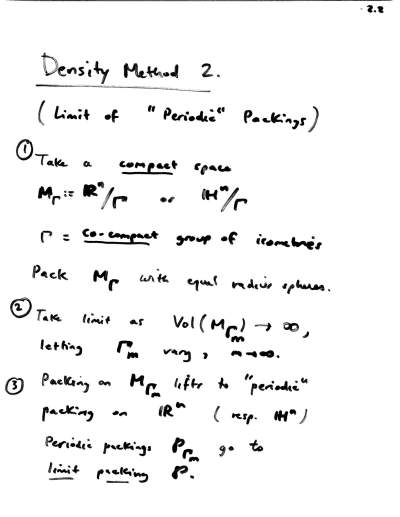 2.2
Density Method 2.
(Limit of "Periodic" Packings)
① Take a compact space
M_Γ := ℝⁿ/Γ or ℍⁿ/Γ
Γ = co-compact group of isometries
Pack M_Γ with equal radius spheres.
② Take limit as Vol(M_Γₘ) → ∞,
letting Γₘ vary, m→∞.
③ Packing on M_Γₘ lifts to "periodic"
packing on ℝⁿ (resp. ℍⁿ)
Periodic packings P_Γₘ go to
limit packing P.